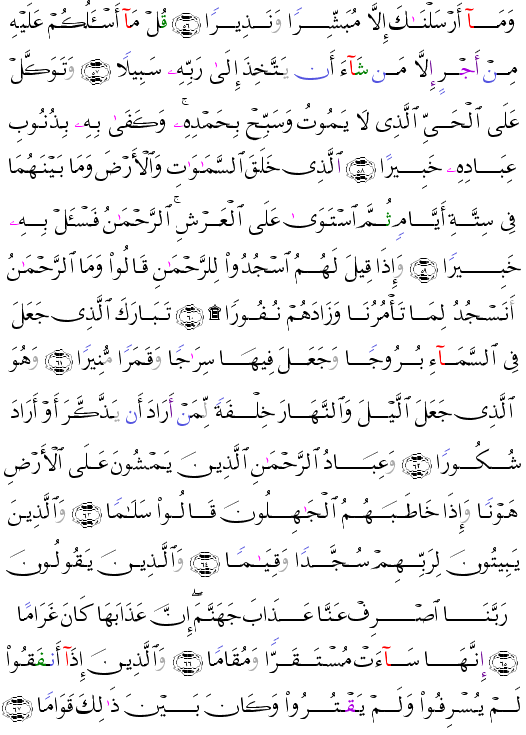 وَمَآ أَرْسَلْنَـٰكَ إِلَّا مُبَشِّرًا وَنَذِيرًا ۝٥٦ قُلْ مَآ أَسْـَٔلُكُمْ عَلَيْهِ
مِنْ أَجْرٍ إِلَّا مَن شَآءَ أَن يَتَّخِذَ إِلَىٰ رَبِّهِۦ سَبِيلًا ۝٥٧ وَتَوَكَّلْ
عَلَى ٱلْحَىِّ ٱلَّذِى لَا يَمُوتُ وَسَبِّحْ بِحَمْدِهِۦ ۚ وَكَفَىٰ بِهِۦ بِذُنُوبِ
عِبَادِهِۦ خَبِيرًا ۝٥٨ ٱلَّذِى خَلَقَ ٱلسَّمَـٰوَٰتِ وَٱلْأَرْضَ وَمَا بَيْنَهُمَا
فِى سِتَّةِ أَيَّامٍ ثُمَّ ٱسْتَوَىٰ عَلَى ٱلْعَرْشِ ۚ ٱلرَّحْمَـٰنُ فَسْـَٔلْ بِهِۦ
خَبِيرًا ۝٥٩ وَإِذَا قِيلَ لَهُمُ ٱسْجُدُوا۟ لِلرَّحْمَـٰنِ قَالُوا۟ وَمَا ٱلرَّحْمَـٰنُ
أَنَسْجُدُ لِمَا تَأْمُرُنَا وَزَادَهُمْ نُفُورًا ۩ ۝٦٠ تَبَارَكَ ٱلَّذِى جَعَلَ
فِى ٱلسَّمَآءِ بُرُوجًا وَجَعَلَ فِيهَا سِرَٰجًا وَقَمَرًا مُّنِيرًا ۝٦١ وَهُوَ
ٱلَّذِى جَعَلَ ٱلَّيْلَ وَٱلنَّهَارَ خِلْفَةً لِّمَنْ أَرَادَ أَن يَذَّكَّرَ أَوْ أَرَادَ
شُكُورًا ۝٦٢ وَعِبَادُ ٱلرَّحْمَـٰنِ ٱلَّذِينَ يَمْشُونَ عَلَى ٱلْأَرْضِ
هَوْنًا وَإِذَا خَاطَبَهُمُ ٱلْجَـٰهِلُونَ قَالُوا۟ سَلَـٰمًا ۝٦٣ وَٱلَّذِينَ
يَبِيتُونَ لِرَبِّهِمْ سُجَّدًا وَقِيَـٰمًا ۝٦٤ وَٱلَّذِينَ يَقُولُونَ
رَبَّنَا ٱصْرِفْ عَنَّا عَذَابَ جَهَنَّمَ ۖ إِنَّ عَذَابَهَا كَانَ غَرَامًا
۝٦٥ إِنَّهَا سَآءَتْ مُسْتَقَرًّا وَمُقَامًا ۝٦٦ وَٱلَّذِينَ إِذَآ أَنفَقُوا۟
لَمْ يُسْرِفُوا۟ وَلَمْ يَقْتُرُوا۟ وَكَانَ بَيْنَ ذَٰلِكَ قَوَامًا ۝٦٧